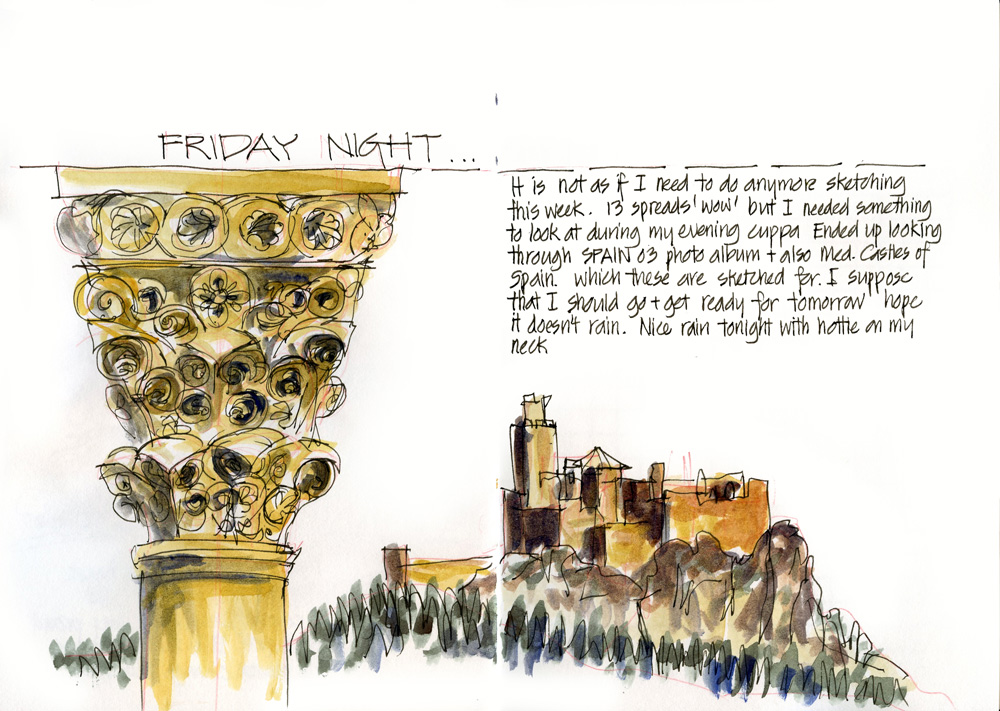 FRIDAY NIGHT...
It is not as if I need to do anymore sketching
this week. 13 spreads 'wow' but I needed something
to look at during my evening cuppa Ended up looking
through SPAIN 03 photo album + also Med. Castles of
Spain. which these are sketched for. I suppose
that I should go + get ready for tomorrow hope
it doesn't rain. Nice rain tonight with hottie on my
neck